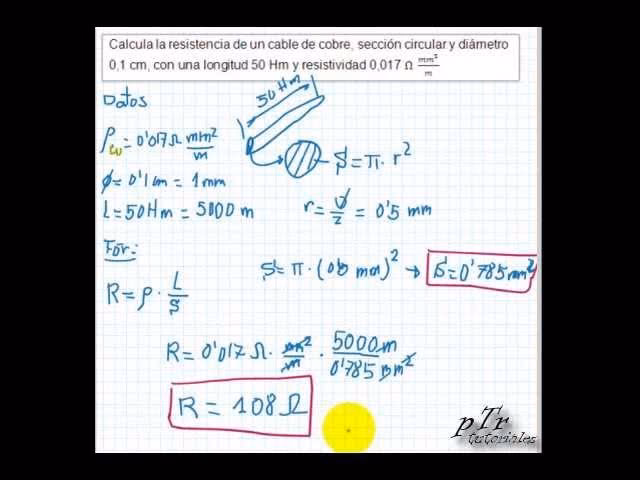 Calcula la resistencia de un cable de cobre, sección circular y diámetro
0,1 cm, con una longitud 50 Hm y resistividad 0,017 Ω mm²/m
Datos
50 Hm
ρcu = 0'017 Ω mm²/m
S = π · r²
ϕ = 0'1 cm = 1 mm
L = 50 Hm = 5000 m
r = ϕ/2 = 0'5 mm
For:
S = π · (0'5 mm)² → S = 0'785 mm²
R = ρ · L/S
R = 0'017 Ω · mm²/m · 5000 m/0'785 mm²
R = 108 Ω
pTr
tutoriales